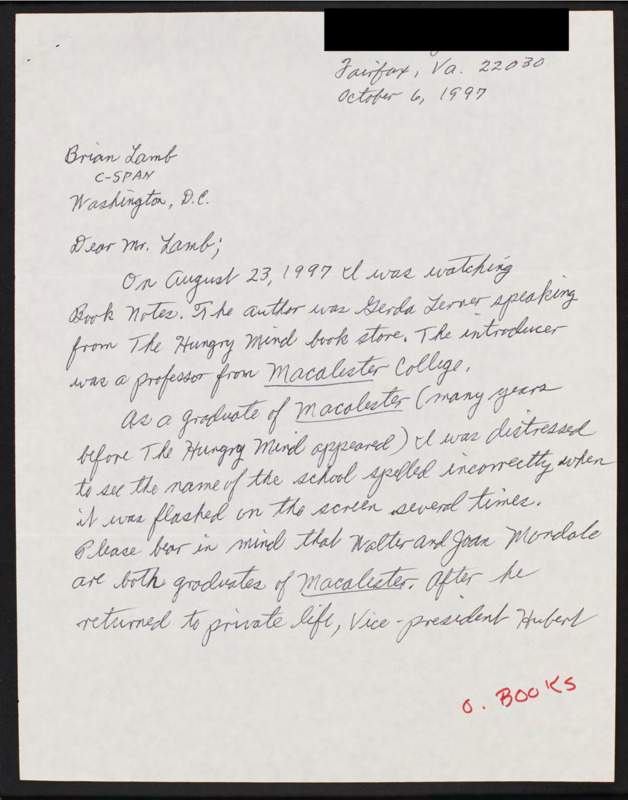 Fairfax, Va. 22030
October 6, 1997
Brian Lamb
C-SPAN
Washington, D.C.
Dear Mr. Lamb;
On August 23, 1997 I was watching
Book Notes. The author was Gerda Lerner speaking
from The Hungry Mind book store. The introducer
was a professor from Macalester College.
As a graduate of Macalester (many years
before The Hungry Mind appeared) I was distressed
to see the name of the school spelled incorrectly when
it was flashed on the screen several times.
Please bear in mind that Walter and Joan Mondale
are both graduates of Macalester. After he
returned to private life, Vice-president Hubert
O. BOOKS